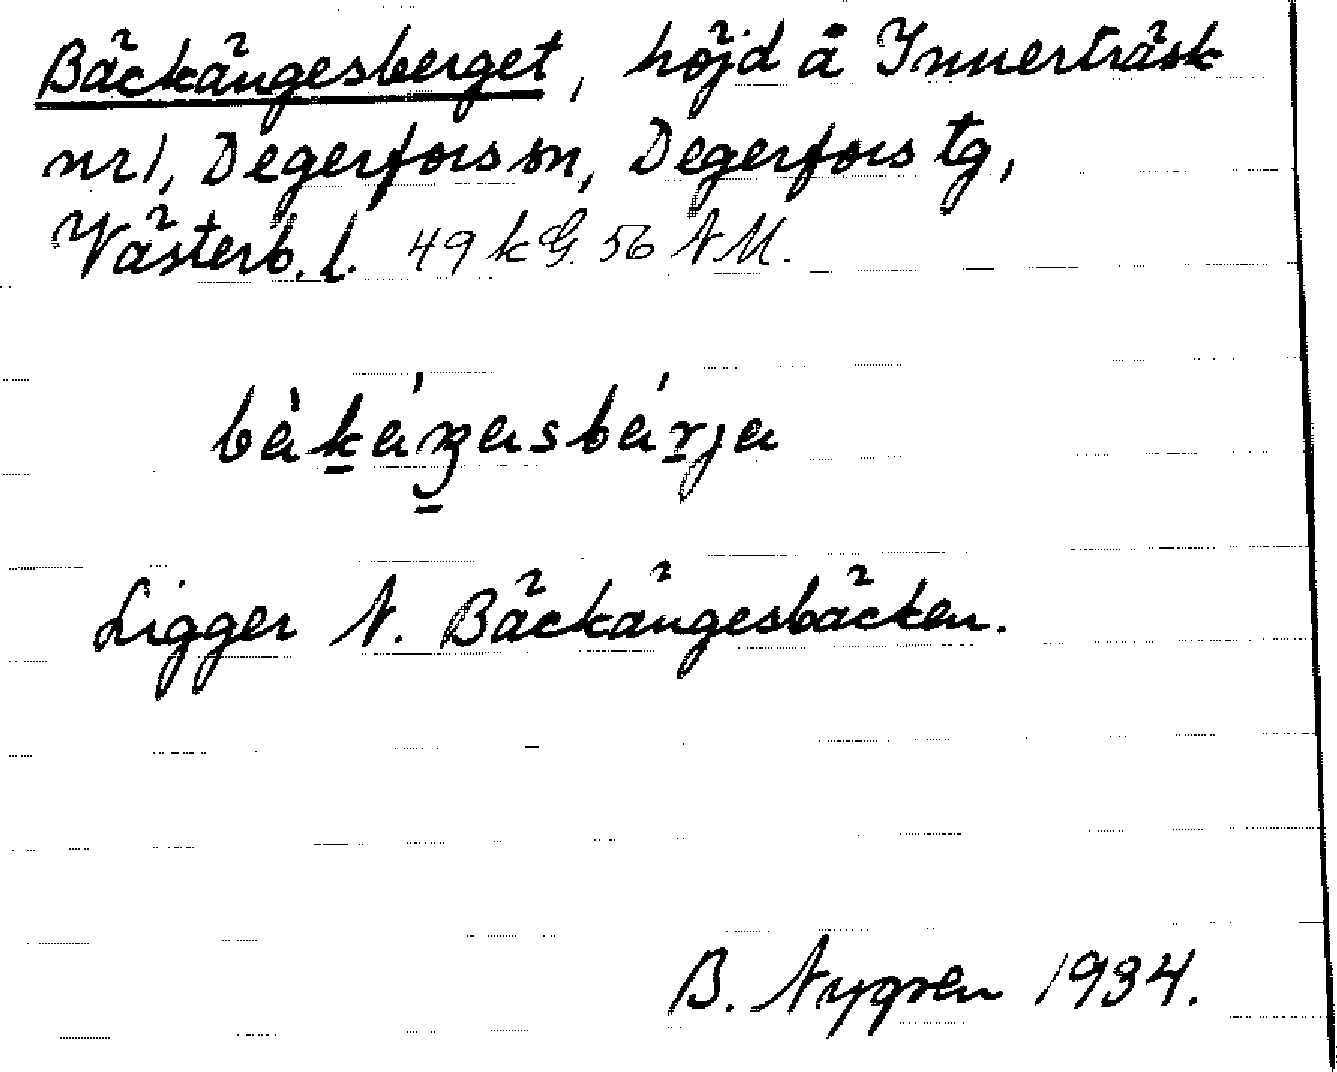 Bäckängesberget, höjd å Innerträsk
nr 1, Degerfors sn, Degerfors tg,
Västerb. l. 49 k G. 56 N M.
Ligger N. Bäckängesbäcken.
B. Nygren 1934.